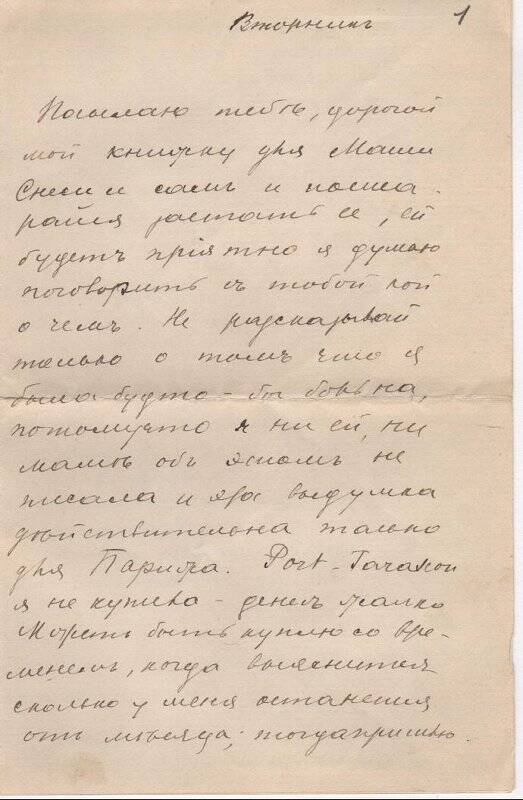 Вторникъ 1
Посылаю тебѣ, дорогой
мой книжку для Маши
Снеси самъ и поста-
райся застать ее, ей
будетъ прiятно я думаю
поговорить съ тобой кой
о чемъ. Не разсказывай
только о томъ что я
была будто-бы больна,
потомучто я ни ей, ни
мамѣ объ этомъ не
писала и эта выдумка
дѣйствительна только
для Парижа. Port-Tarascon
я не купила - денегъ жалко
Можетъ быть куплю со вре-
менемъ, когда выяснится
сколько у меня останется
отъ мѣсяца; тогда пришлю.